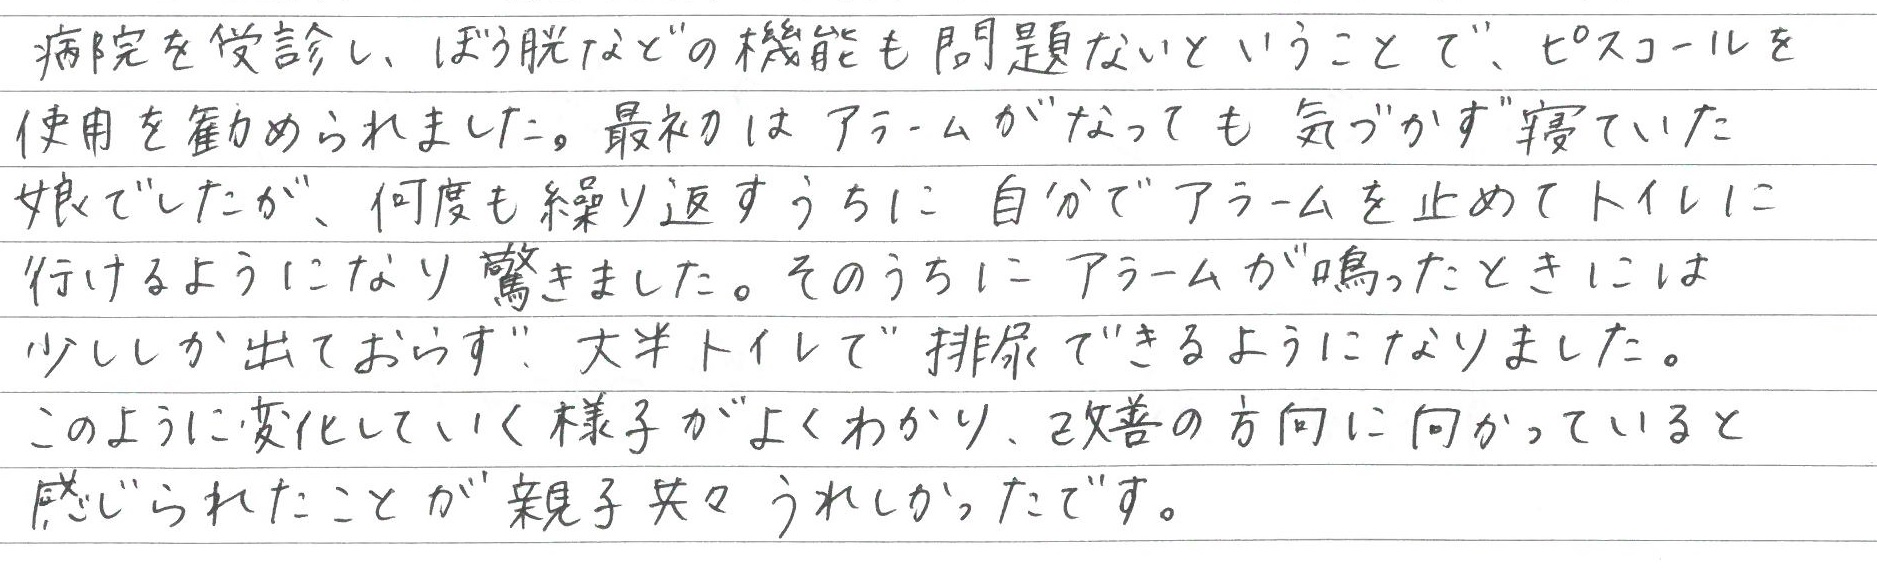 病院を受診し、ぼう脱などの機能も問題ないということで、ピスコールを
使用を勧められました。最初は アラームがなっても 気づかず寝ていた
娘でしたが、何度も繰り返すうちに 自分で アラームを止めてトイレに
行けるようになり 驚きました。そのうちに アラームが鳴ったときには
少ししか出ておらず、大半トイレで 排尿できるようになりました。
このように変化していく様子がよくわかり、改善の方向に向かっていると
感じられたことが 親子共々 うれしかったです。